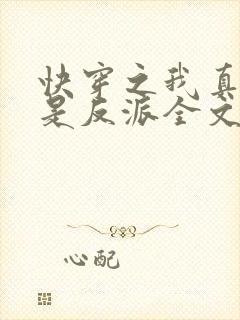 快穿之我真
是反派全文
心配